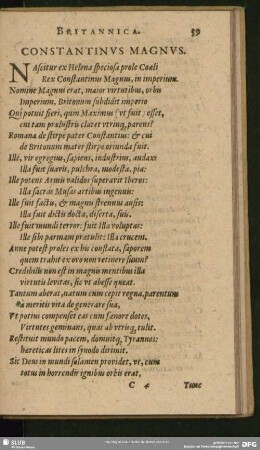 BRITANNICA. 59
CONSTANTINVS MAGNVS.
NAscitur ex Helena speciosa prole Coeli
Rex Constantinus Magnus, in imperium.
Nomine Magnus erat, maior virtutibus, orbis
Imperium, Britonum subdidit imperio
Qui potuit fieri, quin Maximus (vt fuit) esset,
cui tam praelustris claret vterq; parens?
Romana de stirpe pater Constantius: & cui
de Britonum mater stirpe oriunda fuit.
Ille, vir egregius, sapiens, industrius, audax:
Illa fuit suavis, pulchra, modesta, pia:
Ille potens Armis validos superavit Iberos:
Illa sacras Musas artibus ingenuis:
Ille fuit factis, & magnis strennuus ausis:
Illa fuit dictis docta, diserta, suis.
Ille fuit mundi terror: fuit Illa voluptas:
Ille sibi parmam praetulit: Illa crucem.
Anne potest proles ex his constata, saporem
quem trahit ex ovo non retinere suum?
Credibile non est in magnis mentibus illa
virtutis levitas, sic vt abesse queat.
Tantum aberat, natum cum cepit regna, parentum
à meritis vita degenerare sua,
Vt potius compenset eas cum foenore dotes,
Virtutes geminans, quas ab vterq; tulit.
Restituit mundo pacem, domuitq; Tyrannos:
hereticas lites in synodo dirimit.
Sic Deus in mundi solamen providet, vt, cum
totus in horrendis ignibus orbis erat,
C 4 Tunc
SLUB
DFG